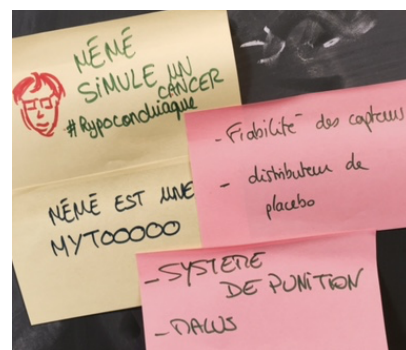 MÉMÉ
SIMULE UN
CANCER
#Hypocondriaque
MÉMÉ EST UNE
MYTOOOOO
- Fiabilité des capteurs
- distributeur de
placebo
- SYSTEME
DE PUNITION
- MALUS